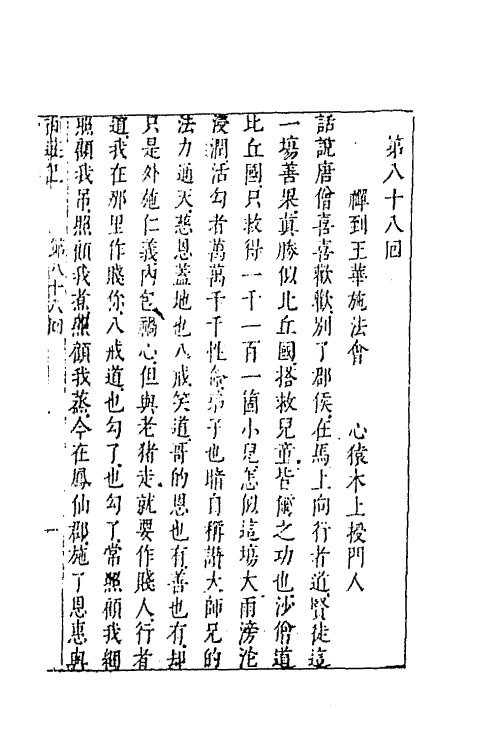 第八十八回
禪到玉華施法會 心猿木土授門人
話說唐僧喜喜歡歡別了郡侯在馬上向行者道賢徒這
一塲善果真勝似比丘國搭救兒童皆爾之功也沙僧道
比丘國只救得一千一百一箇小兒怎似這塲大雨滂沱
浸潤活勾者萬萬千千性命弟子也暗自稱讚大師兄的
法力通天慈恩蓋地也八戒笑道哥的恩也有善也有却
只是外施仁義內包禍心但與老猪走就要作賤人行者
道我在那里作賤你八戒道也勾了也勾了常照顧我綑
照顧我吊照顧我煮照顧我蒸今在鳳仙郡施了恩惠與
西遊記 第八十八回 一